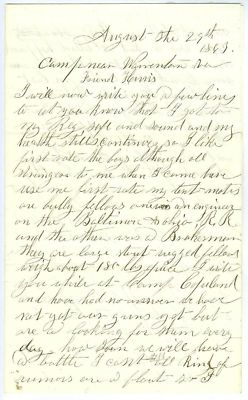 August the 29th
1863
Camp near Warrenton Va
Friend Harris
I will now write you a few lines
to let you know that I got to
my Reg safe and sound and my
health still continues so I like
first rate the boys although all
strangers to me when I come here
use me first rate my tent mates
are bully fellows one an engineer
on the Baltimore & Ohio R.R.
and the other was a Brakeman
They are large stout rugged fellows
weigh about 180 lbs apiece I wrote
you while at Camp Copeland
and have had no answer we have
not got our guns yet but
are looking for them every
day how soon we will have
a battle I cant tell all kind of
rumors are a float &